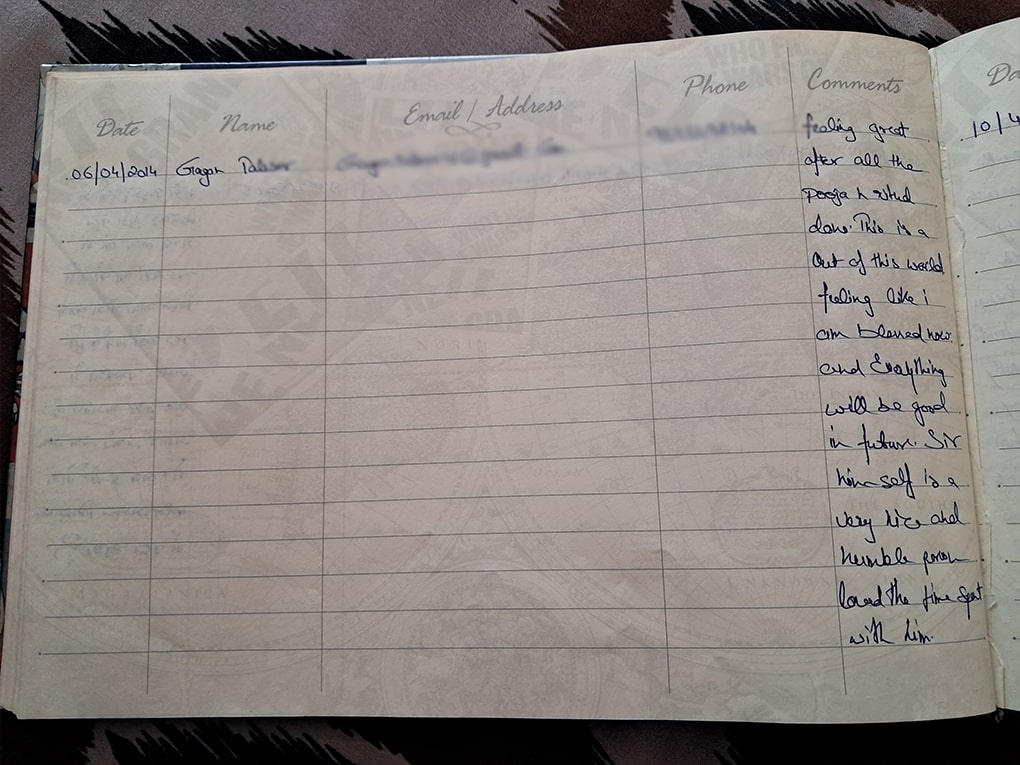 Date Name Email / Address Phone Comments
06/04/2014 Gagan
feeling great
after all the
pooja n ritual
done. This is a
Out of this world
feeling like i
am blessed now
and Everything
will be good
in future. Sir
himself is a
very nice and
humble person
loved the time spent
with him.
Da
10/4